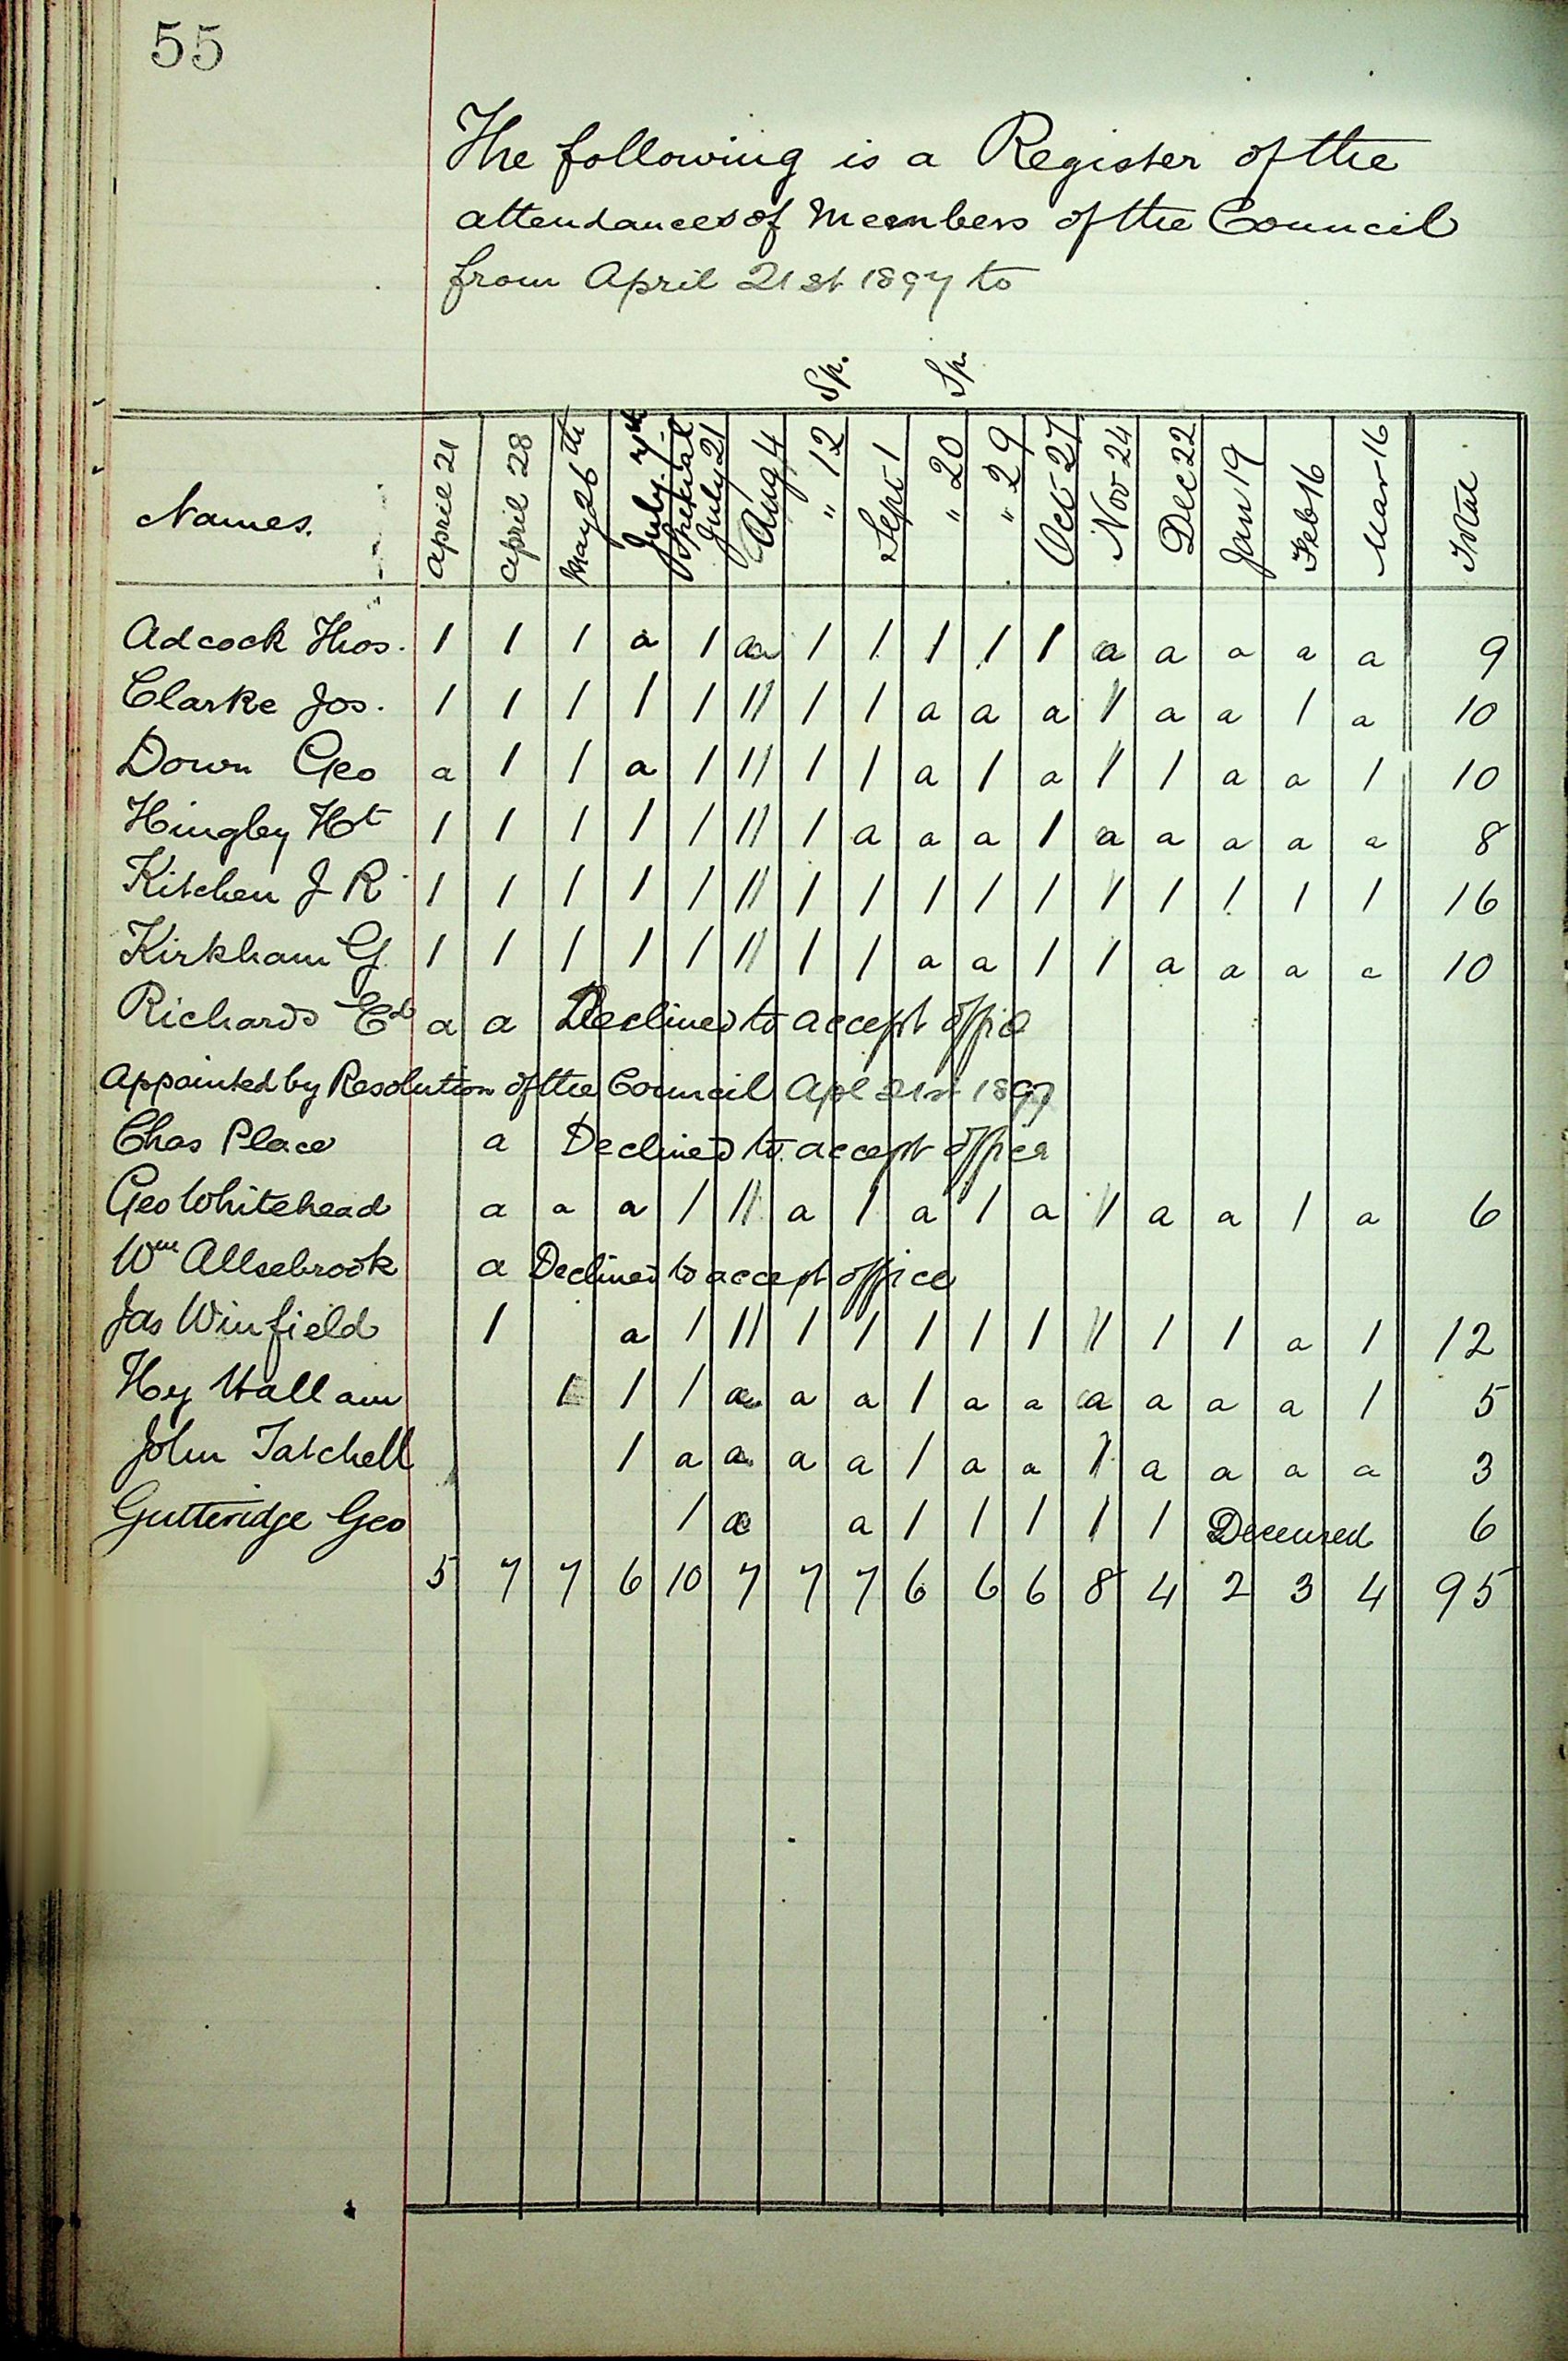 55
The following is a Register of the
attendances of Members of the Council
from April 21st 1897 to
Sp. Sp.
Names. April 21 April 28 May 26th July 7th Special July 21 Aug 4 " 12 Sept 1 " 20 " 29 Oct 27 Nov 24 Dec 22 Jan 19 Feb 16 Mar 16 Total
Adcock Thos. 1 1 1 a 1 a 1 1 1 1 1 a a a a a 9
Clarke Jos. 1 1 1 1 1 11 1 1 a a a 1 a a 1 a 10
Down Geo a 1 1 a 1 11 1 1 a 1 a 1 1 a a 1 10
Hingley Ht 1 1 1 1 1 11 1 a a a 1 a a a a a 8
Kitchen J R 1 1 1 1 1 11 1 1 1 1 1 1 1 1 1 1 16
Kirkham G. 1 1 1 1 1 11 1 1 a a 1 1 a a a a 10
Richards Ed a a Declined to accept office
Appointed by Resolution of the Council Apl 21st 1897
Chas Place a Declined to accept office
Geo Whitehead a a a 1 11 a 1 a 1 a 1 a a 1 a 6
Wm Allsebrook a Declined to accept office
Jas Winfield 1 a 1 11 1 1 1 1 1 11 1 1 a 1 12
Hy Hallam 1 1 1 a a a 1 a a a a a a 1 5
John Tatchell 1 a a a a 1 a a 1 a a a a 3
Gutteridge Geo 1 a a 1 1 1 1 1 Deceased 6
5 7 7 6 10 7 7 7 6 6 6 8 4 2 3 4 95